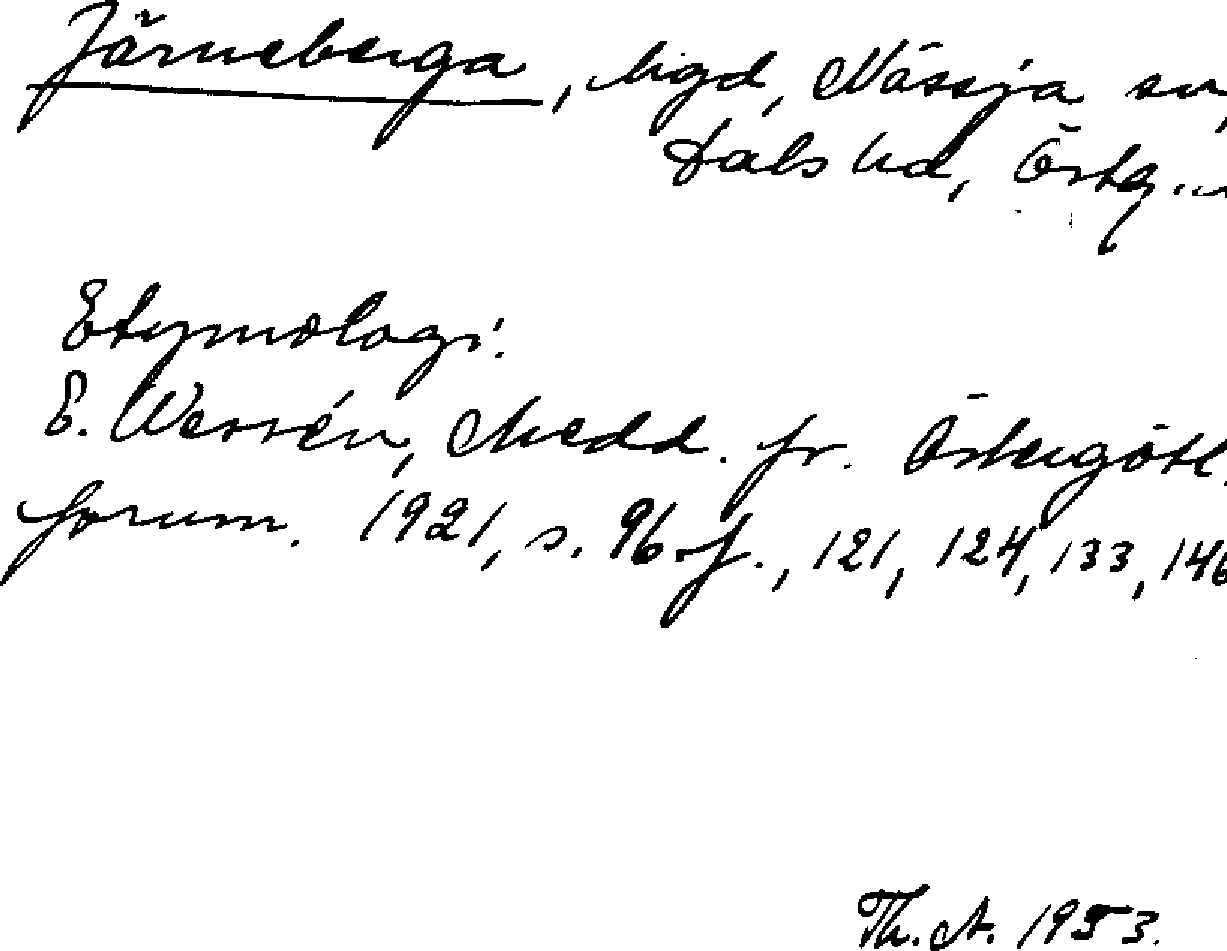 Järneberga, hgd, Nässja sn,
Dals hd, Östg.
Etymologi:
E. Wessén, Medd. fr. Östergötl.
fornm. 1921, s. 96 f., 121, 124, 133, 146
Th. A. 1953.